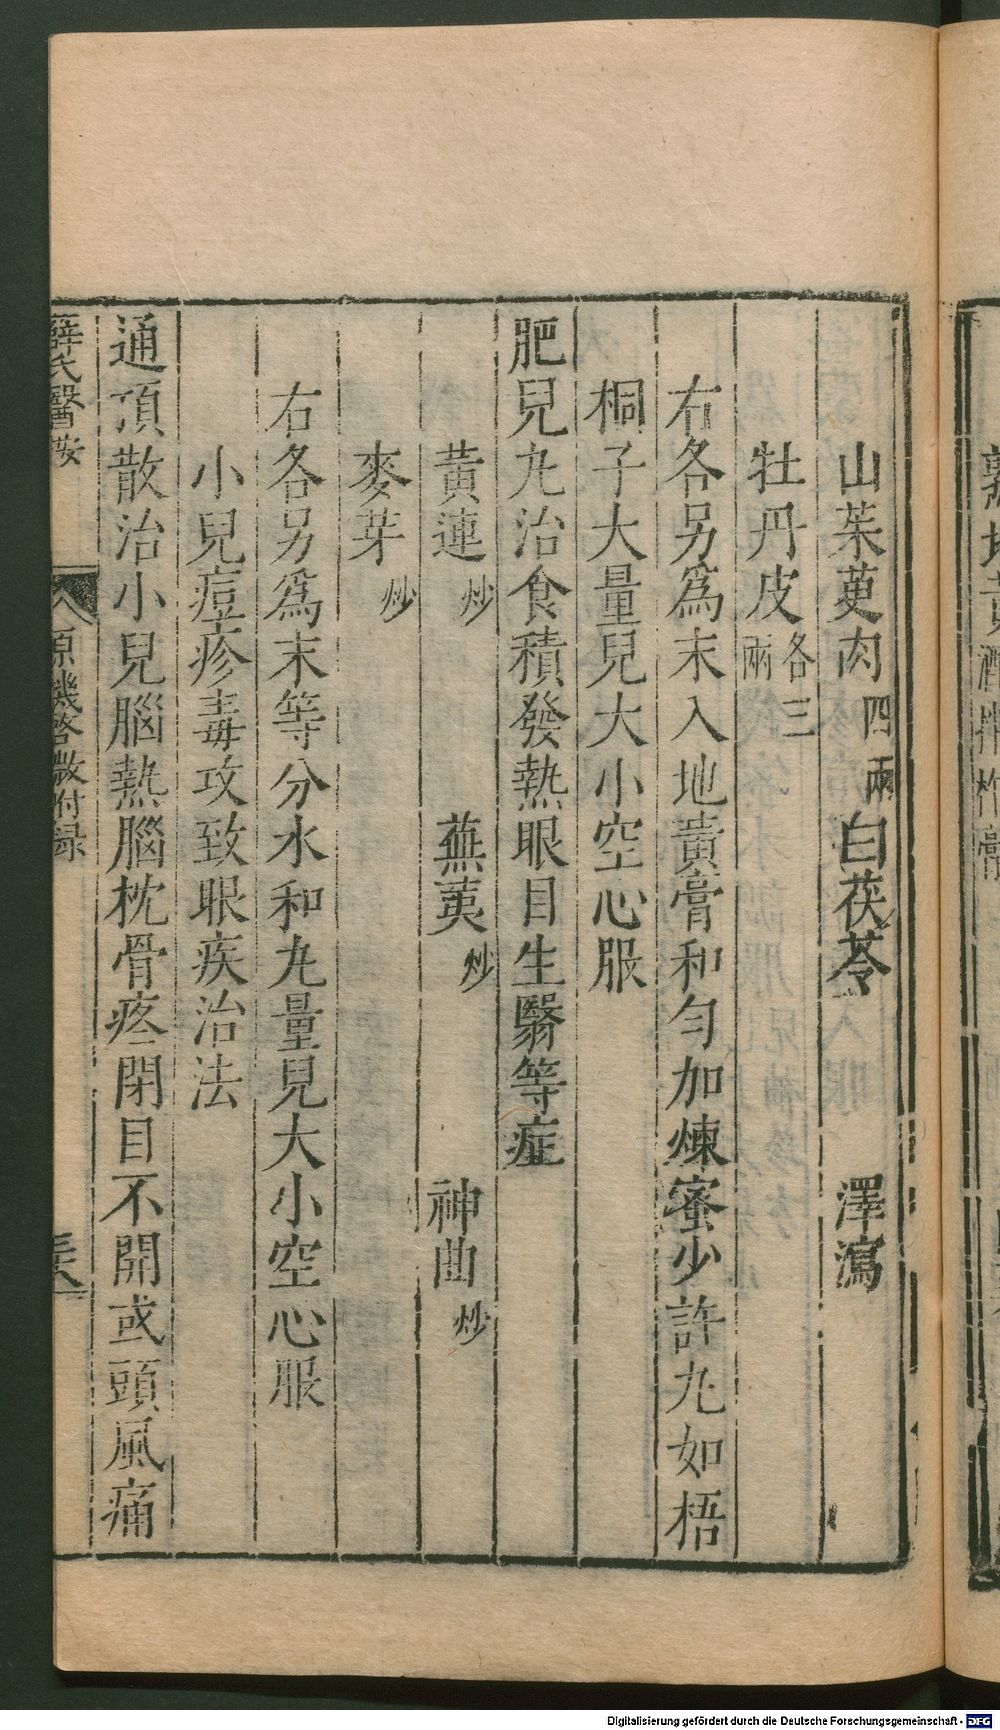 山茱萸肉四兩 白茯苓 澤瀉
牡丹皮各三兩
右各另爲末入地黃膏和勻加煉蜜少許丸如梧
桐子大量兒大小空心服
肥兒丸治食積發熱眼目生翳等症
黃連炒 蕪荑炒 神曲炒
麥芽炒
右各另爲末等分水和丸量兒大小空心服
小兒痘疹毒攻致眼疾治法
通頂散治小兒腦熱腦枕骨疼閉目不開或頭風痛
薛氏醫按 原機啓微附録
Digitalisierung gefördert durch die Deutsche Forschungsgemeinschaft - DFG